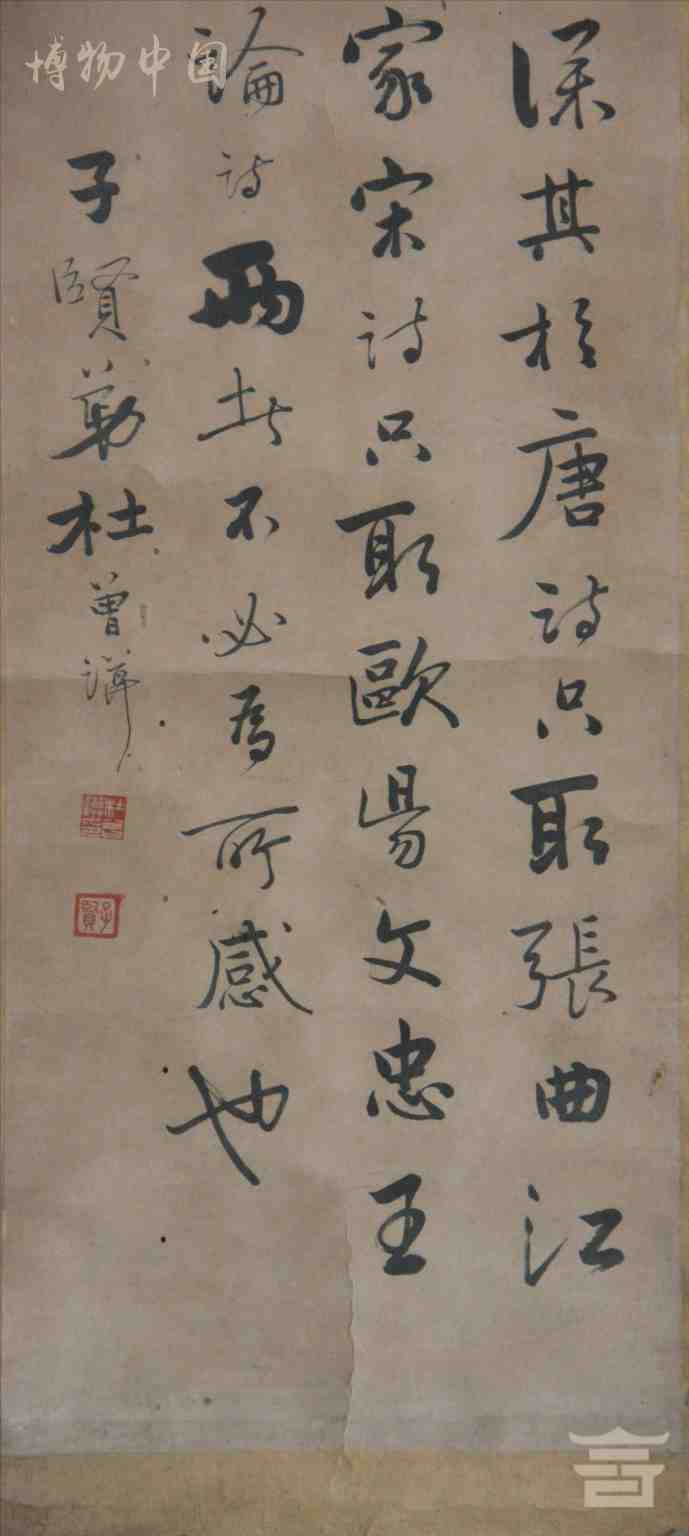 博物中国
其於唐詩只取張曲江
家宋詩只取歐陽文忠王
論詩兩不必為所感也
子賢杜曾
子賢